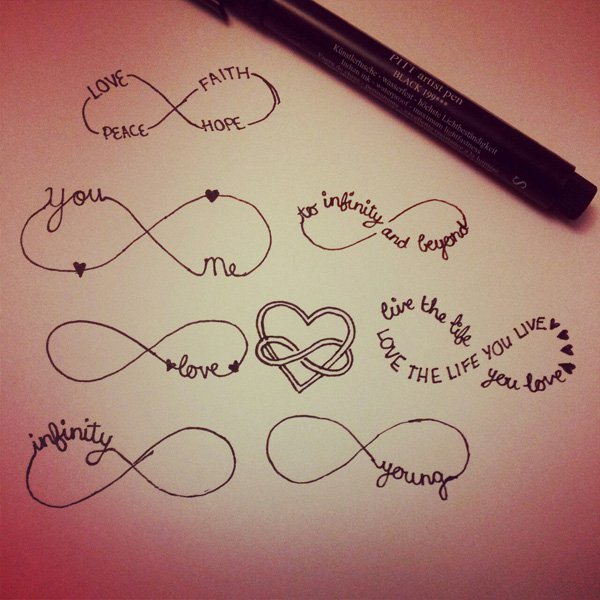 LOVE FAITH
PEACE HOPE
PITT artist pen
BLACK 199***
Künstlertusche - wasserfest - höchste Lichtbeständigkeit
You
me
to infinity
and beyond
love
live the life
LOVE THE LIFE YOU LIVE
you love
infinity
young
S